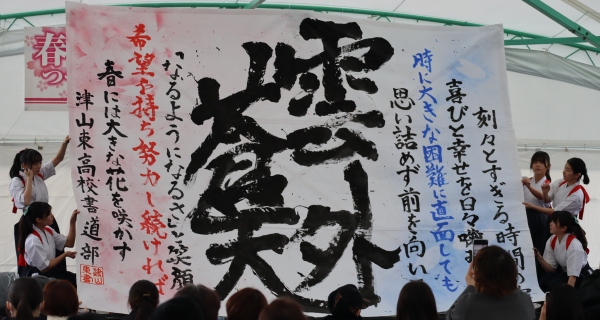 春
つ
刻々とすぎる時間
喜びと幸せを日々
時に大きな困難に直面しても
思い詰めず前を向い
雲外
蒼天
「なるようになるさ」と笑顔
希望を持ち努力し続ければ
春には大きな花を咲かす
津山東高校書道部